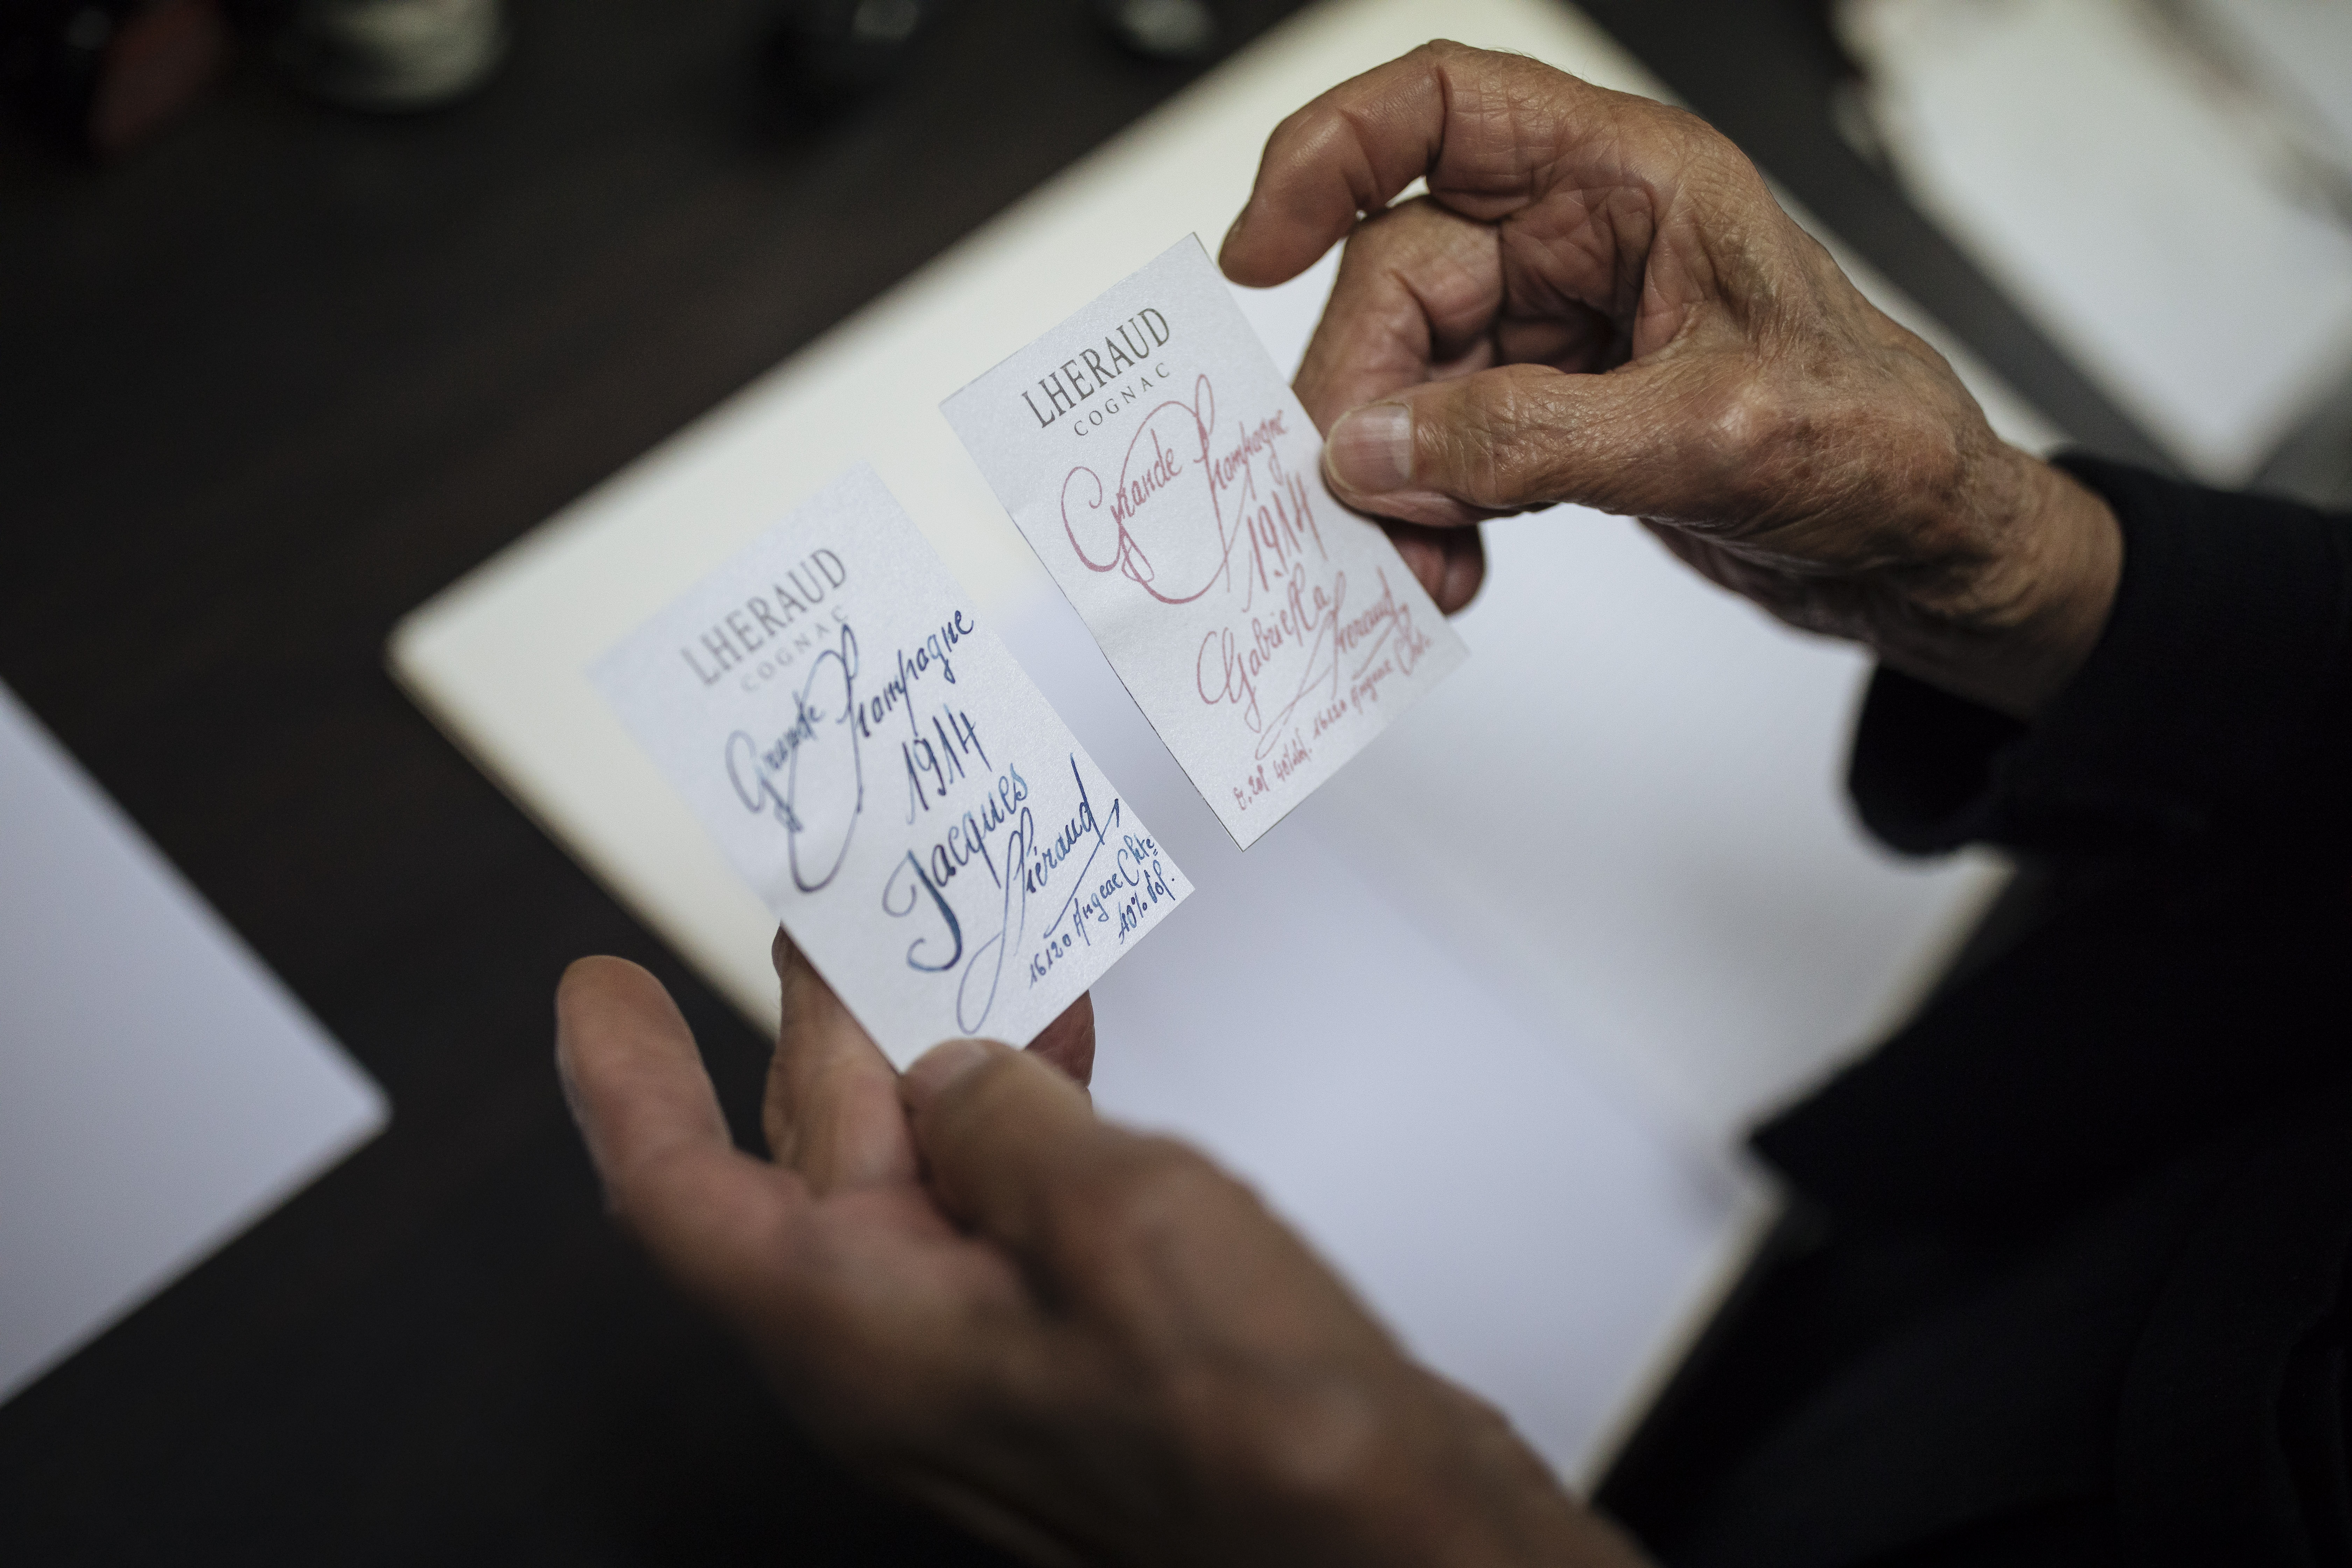 LHERAUD
COGNAC
Grande Champagne
1914
Jacques
Lhéraud
16120 Angeac Chte
40% vol.
LHERAUD
COGNAC
Grande Champagne
1914
Gabriella
Lheraud
40% vol. 16120 Angeac Chte.